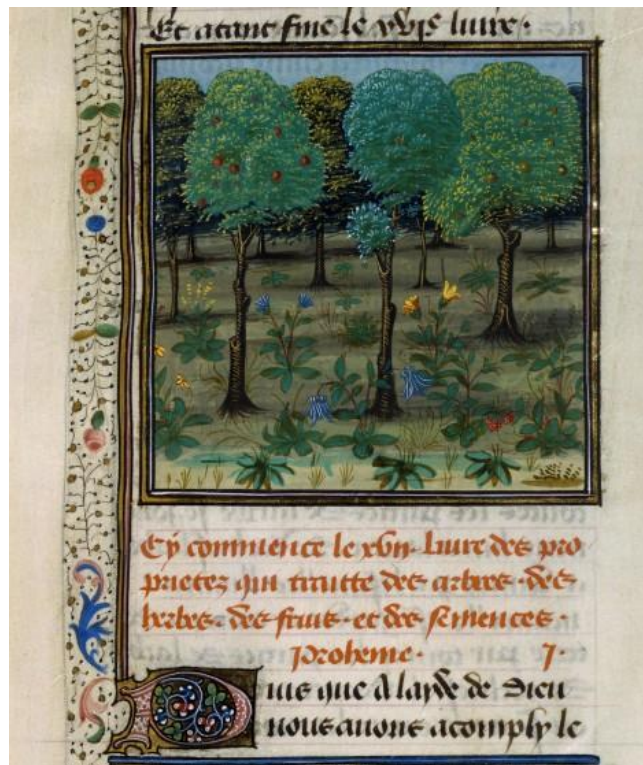 Et atant fine le xvi^e liure ·
Cy commence le xvii · Liure des pro
prietez qui traitte des arbres · des
herbes · des fruis · et des semences ·
Proheme · I ·
Puis que a layde de Dieu
nous auons acomply le